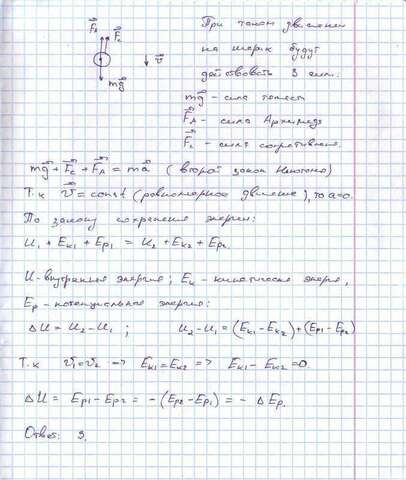 F⃗A
F⃗c
v⃗
mg⃗
При таком движении
на шарик будут
действовать 3 силы:
mg⃗ - сила тяжести
F⃗A - сила Архимеда
F⃗c - сила сопротивления.
mg⃗ + F⃗c + F⃗A = ma⃗ (второй закон Ньютона)
Т.к v⃗ = const (равномерное движение), то a=0.
По закону сохранения энергии:
U1 + Ek1 + Ep1 = U2 + Ek2 + Ep2.
U - внутренняя энергия; Ek - кинетическая энергия,
Ep - потенциальная энергия:
ΔU = U2 - U1 ; U2 - U1 = (Ek1 - Ek2) + (Ep1 - Ep2)
Т.к v1 = v2 => Ek1 = Ek2 => Ek1 - Ek2 = 0.
ΔU = Ep1 - Ep2 = -(Ep2 - Ep1) = - ΔEp.
Ответ: 3.